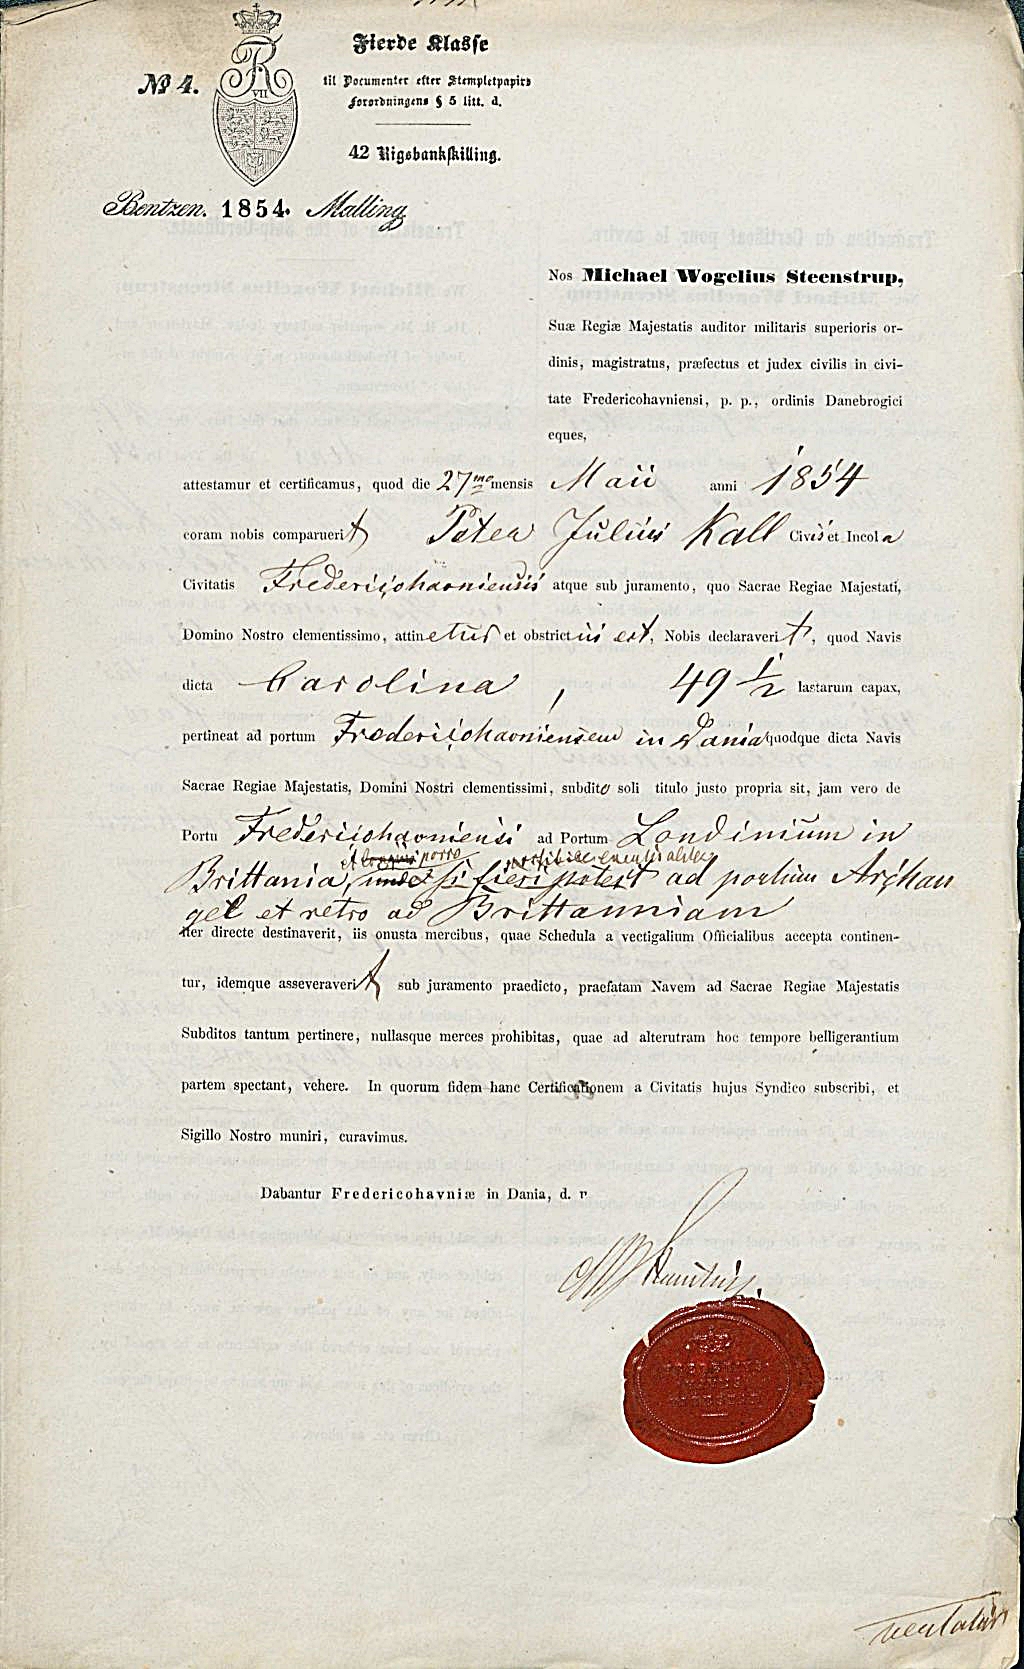 Fierde Klasse
til Documenter efter Stempletpapirs
forordningens § 5 litt. d.
№ 4.
VII
42 Rigsbankskilling.
Bentzen. 1854. Malling
Nos Michael Wogelius Steenstrup,
Suæ Regiæ Majestatis auditor militaris superioris or-
dinis, magistratus, præfectus et judex civilis in civi-
tate Fredericohavniensi, p. p., ordinis Danebrogici
eques,
attestamur et certificamus, quod die 27mo mensis Maii anni 1854
coram nobis comparuerit Peter Julius Kall Civis et Incola
Civitatis Fredericohavniensis atque sub juramento, quo Sacrae Regiae Majestati,
Domino Nostro clementissimo, attinetur et obstrictus est, Nobis declaraverit, quod Navis
dicta Carolina, 49 1/2 lastarum capax,
pertineat ad portum Fredericohavniensem in Dania quodque dicta Navis
Sacrae Regiae Majestatis, Domini Nostri clementissimi, subdito soli titulo justo propria sit, jam vero de
Portu Fredericohavniensi ad Portum Londinium in
et porro
Brittania, si fieri potest ad portum Archan
gel et retro ad Brittanniam
iter directe destinaverit, iis onusta mercibus, quae Schedula a vectigalium Officialibus accepta continen-
tur, idemque asseveraverit sub juramento praedicto, praefatam Navem ad Sacrae Regiae Majestatis
Subditos tantum pertinere, nullasque merces prohibitas, quae ad alterutram hoc tempore belligerantium
partem spectant, vehere. In quorum fidem hanc Certificationem a Civitatis hujus Syndico subscribi, et
Sigillo Nostro muniri, curavimus.
Dabantur Fredericohavniæ in Dania, d. r